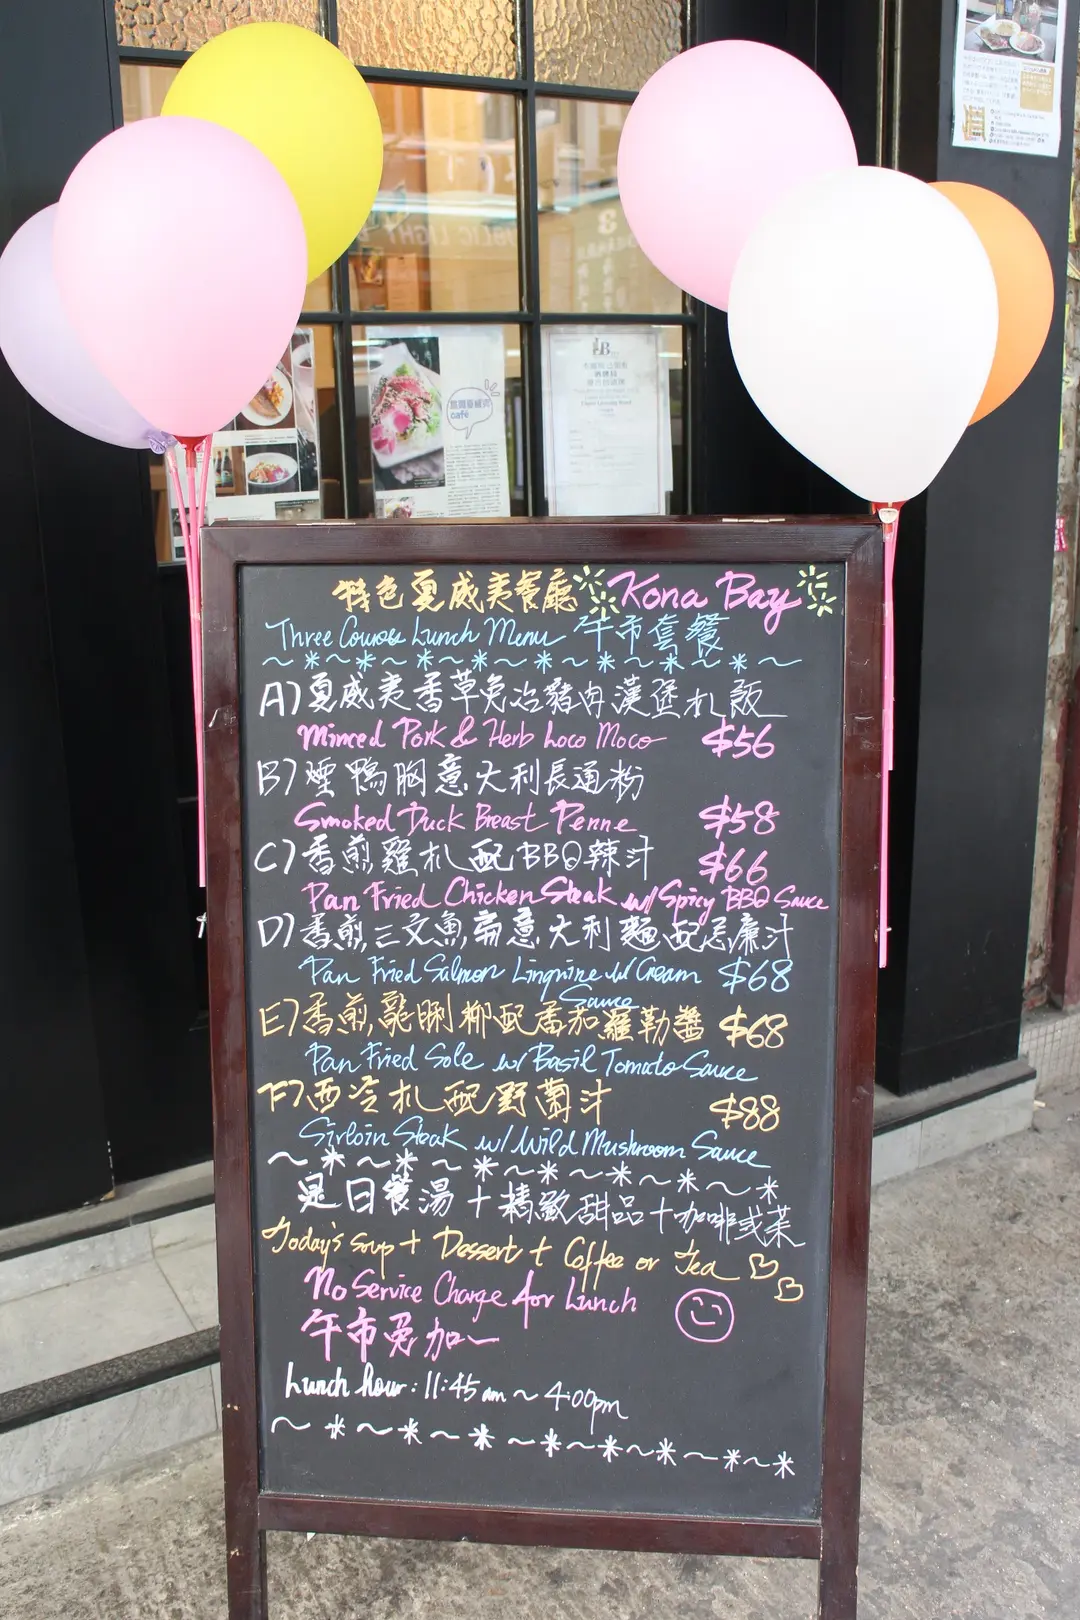 特色夏威夷餐廳 Kona Bay
Three Course Lunch Menu 午市套餐
A) 夏威夷香草免治豬肉漢堡扒飯
Minced Pork & Herb Loco Moco $56
B) 煙鴨胸意大利長通粉
Smoked Duck Breast Penne $58
C) 香煎雞扒配BBQ辣汁 $66
Pan Fried Chicken Steak w/ Spicy BBQ Sauce
D) 香煎三文魚扁意大利麵配忌廉汁
Pan Fried Salmon Linguine w/ Cream $68
Sauce
E) 香煎龍脷柳配番茄羅勒醬 $68
Pan Fried Sole w/ Basil Tomato Sauce
F) 西冷扒配野菌汁 $88
Sirloin Steak w/ Wild Mushroom Sauce
是日餐湯+精緻甜品+咖啡或茶
Today's Soup + Dessert + Coffee or Tea
No Service Charge for Lunch
午市免加一
Lunch hour: 11:45am ~ 4:00pm
café